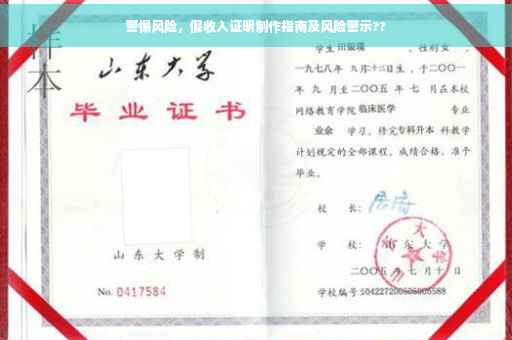 警惕风险，假收入证明制作指南及风险警示??
样本
山东大学
毕业证书
山东大学制
No. 0417584
学生 田银瑞 ，性别女 ，
一九七八年 九月十三日生，于二〇〇一
年 九 月至二〇〇五 年 七 月在本校
网络教育学院临床医学 专业
业余 学习，修完专科升本 科教学
计划规定的全部课程，成绩合格，准予
毕业。
校 长：
学 校： 山东大学
二〇〇五年 七 月十 日
学校编号:104227200505005588